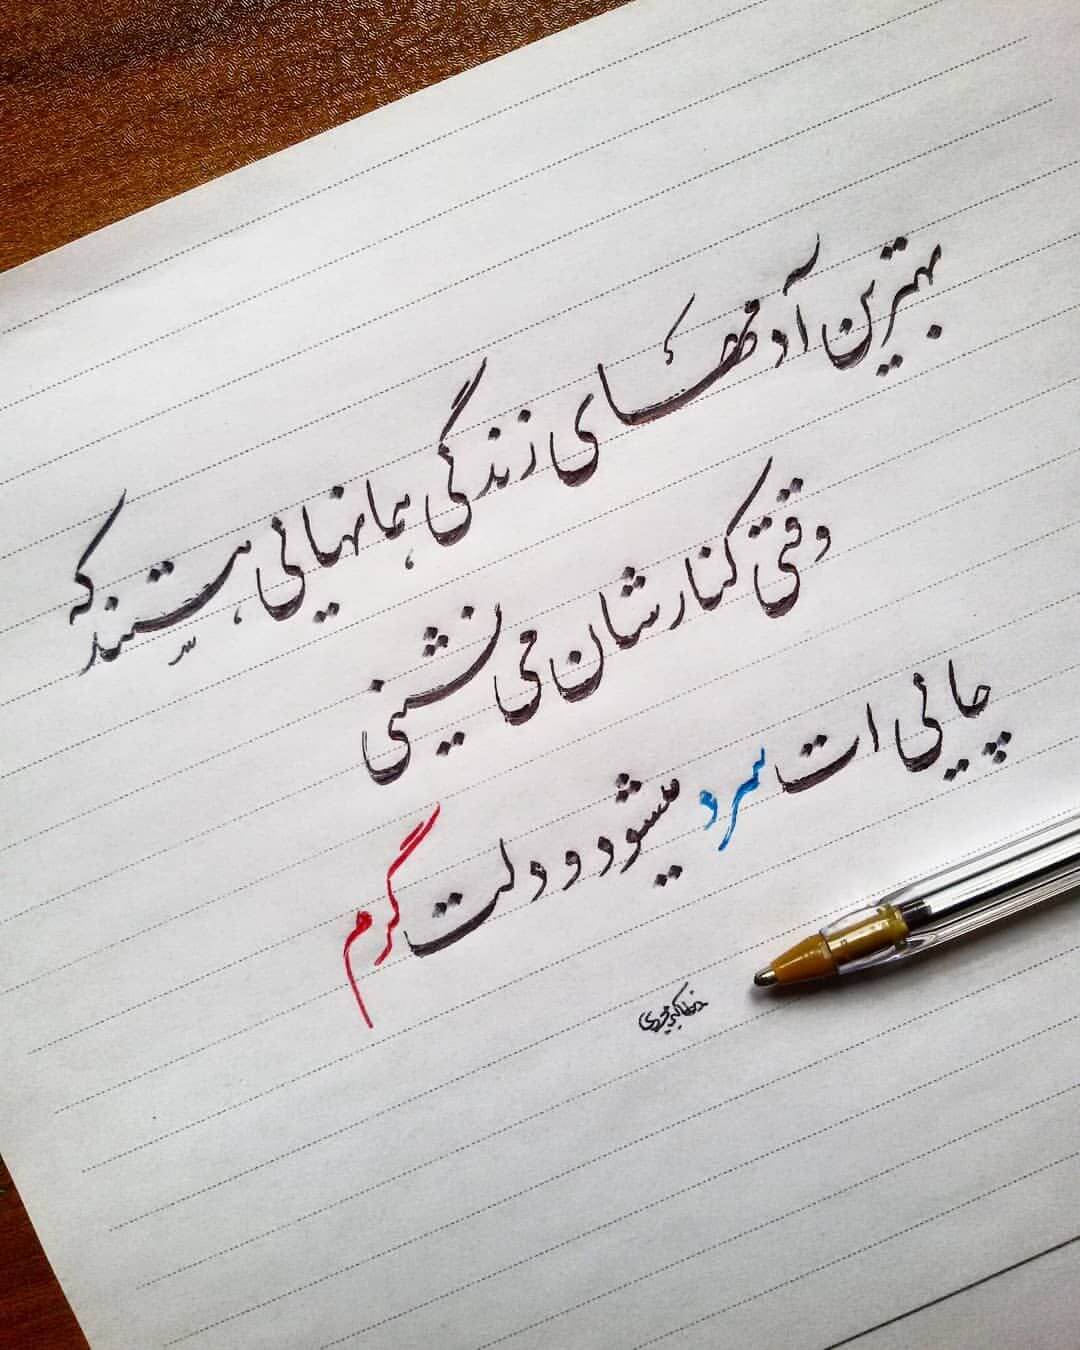 بهترین آدمهای زندگی همانهایی هستند که
وقتی کنارشان می نشینی
چایی ات سرد میشود و دلت گرم